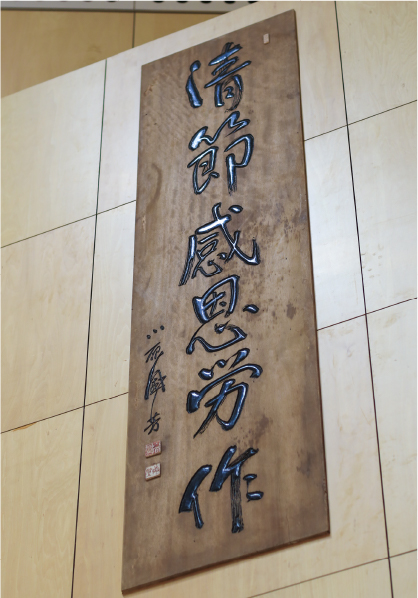 清節感恩労作